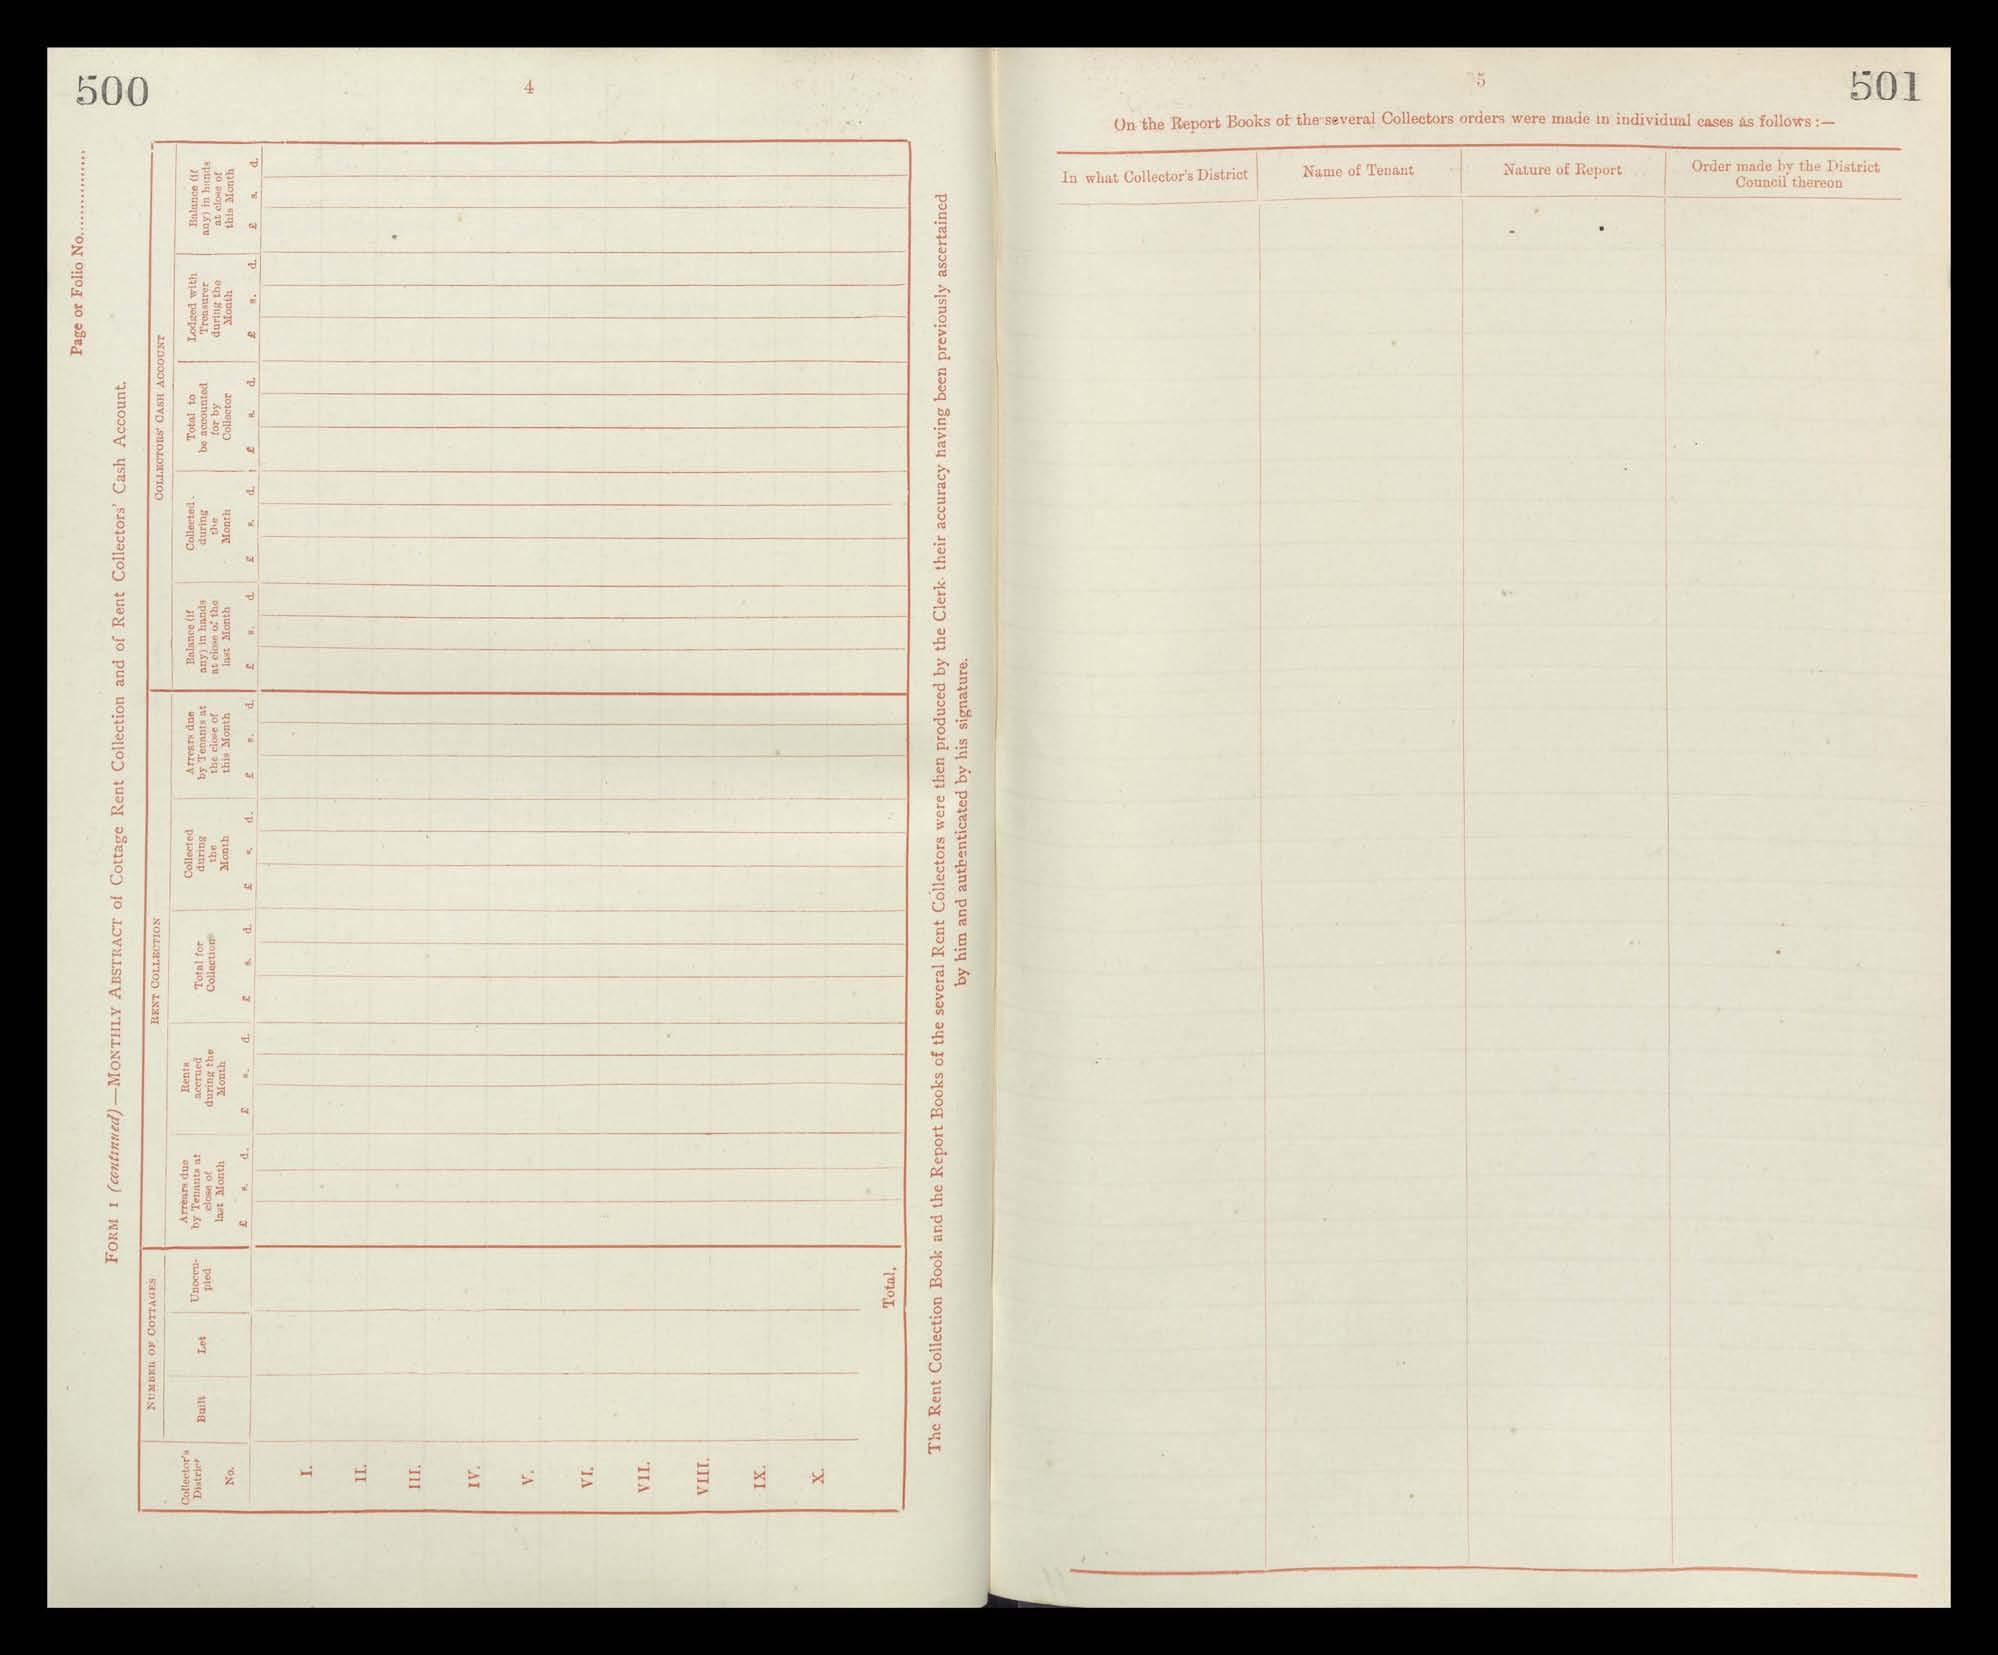 500
4
Page or Folio No.
FORM 1 (continued)—MONTHLY ABSTRACT of Cottage Rent Collection and of Rent Collectors' Cash Account.
NUMBER OF COTTAGES
RENT COLLECTION
COLLECTORS' CASH ACCOUNT
Collector's
District
No.
Built
Let
Unoccu-
pied
Arrears due
by Tenants at
close of
last Month
£ s. d.
Rents
accrued
during the
Month
£ s. d.
Total for
Collection
£ s. d.
Collected
during
the
Month
£ s. d.
Arrears due
by Tenants at
the close of
this Month
£ s. d.
Balance (if
any) in hands
at close of the
last Month
£ s. d.
Collected
during
the
Month
£ s. d.
Total to
be accounted
for by
Collector
£ s. d.
Lodged with
Treasurer
during the
Month
£ s. d.
Balance (if
any) in hands
at close of
this Month
£ s. d.
I.
II.
III.
IV.
V.
VI.
VII.
VIII.
IX.
X.
Total,
The Rent Collection Book and the Report Books of the several Rent Collectors were then produced by the Clerk, their accuracy having been previously ascertained
by him and authenticated by his signature.
5
501
On the Report Books of the several Collectors orders were made in individual cases as follows:—
In what Collector's District
Name of Tenant
Nature of Report
Order made by the District
Council thereon